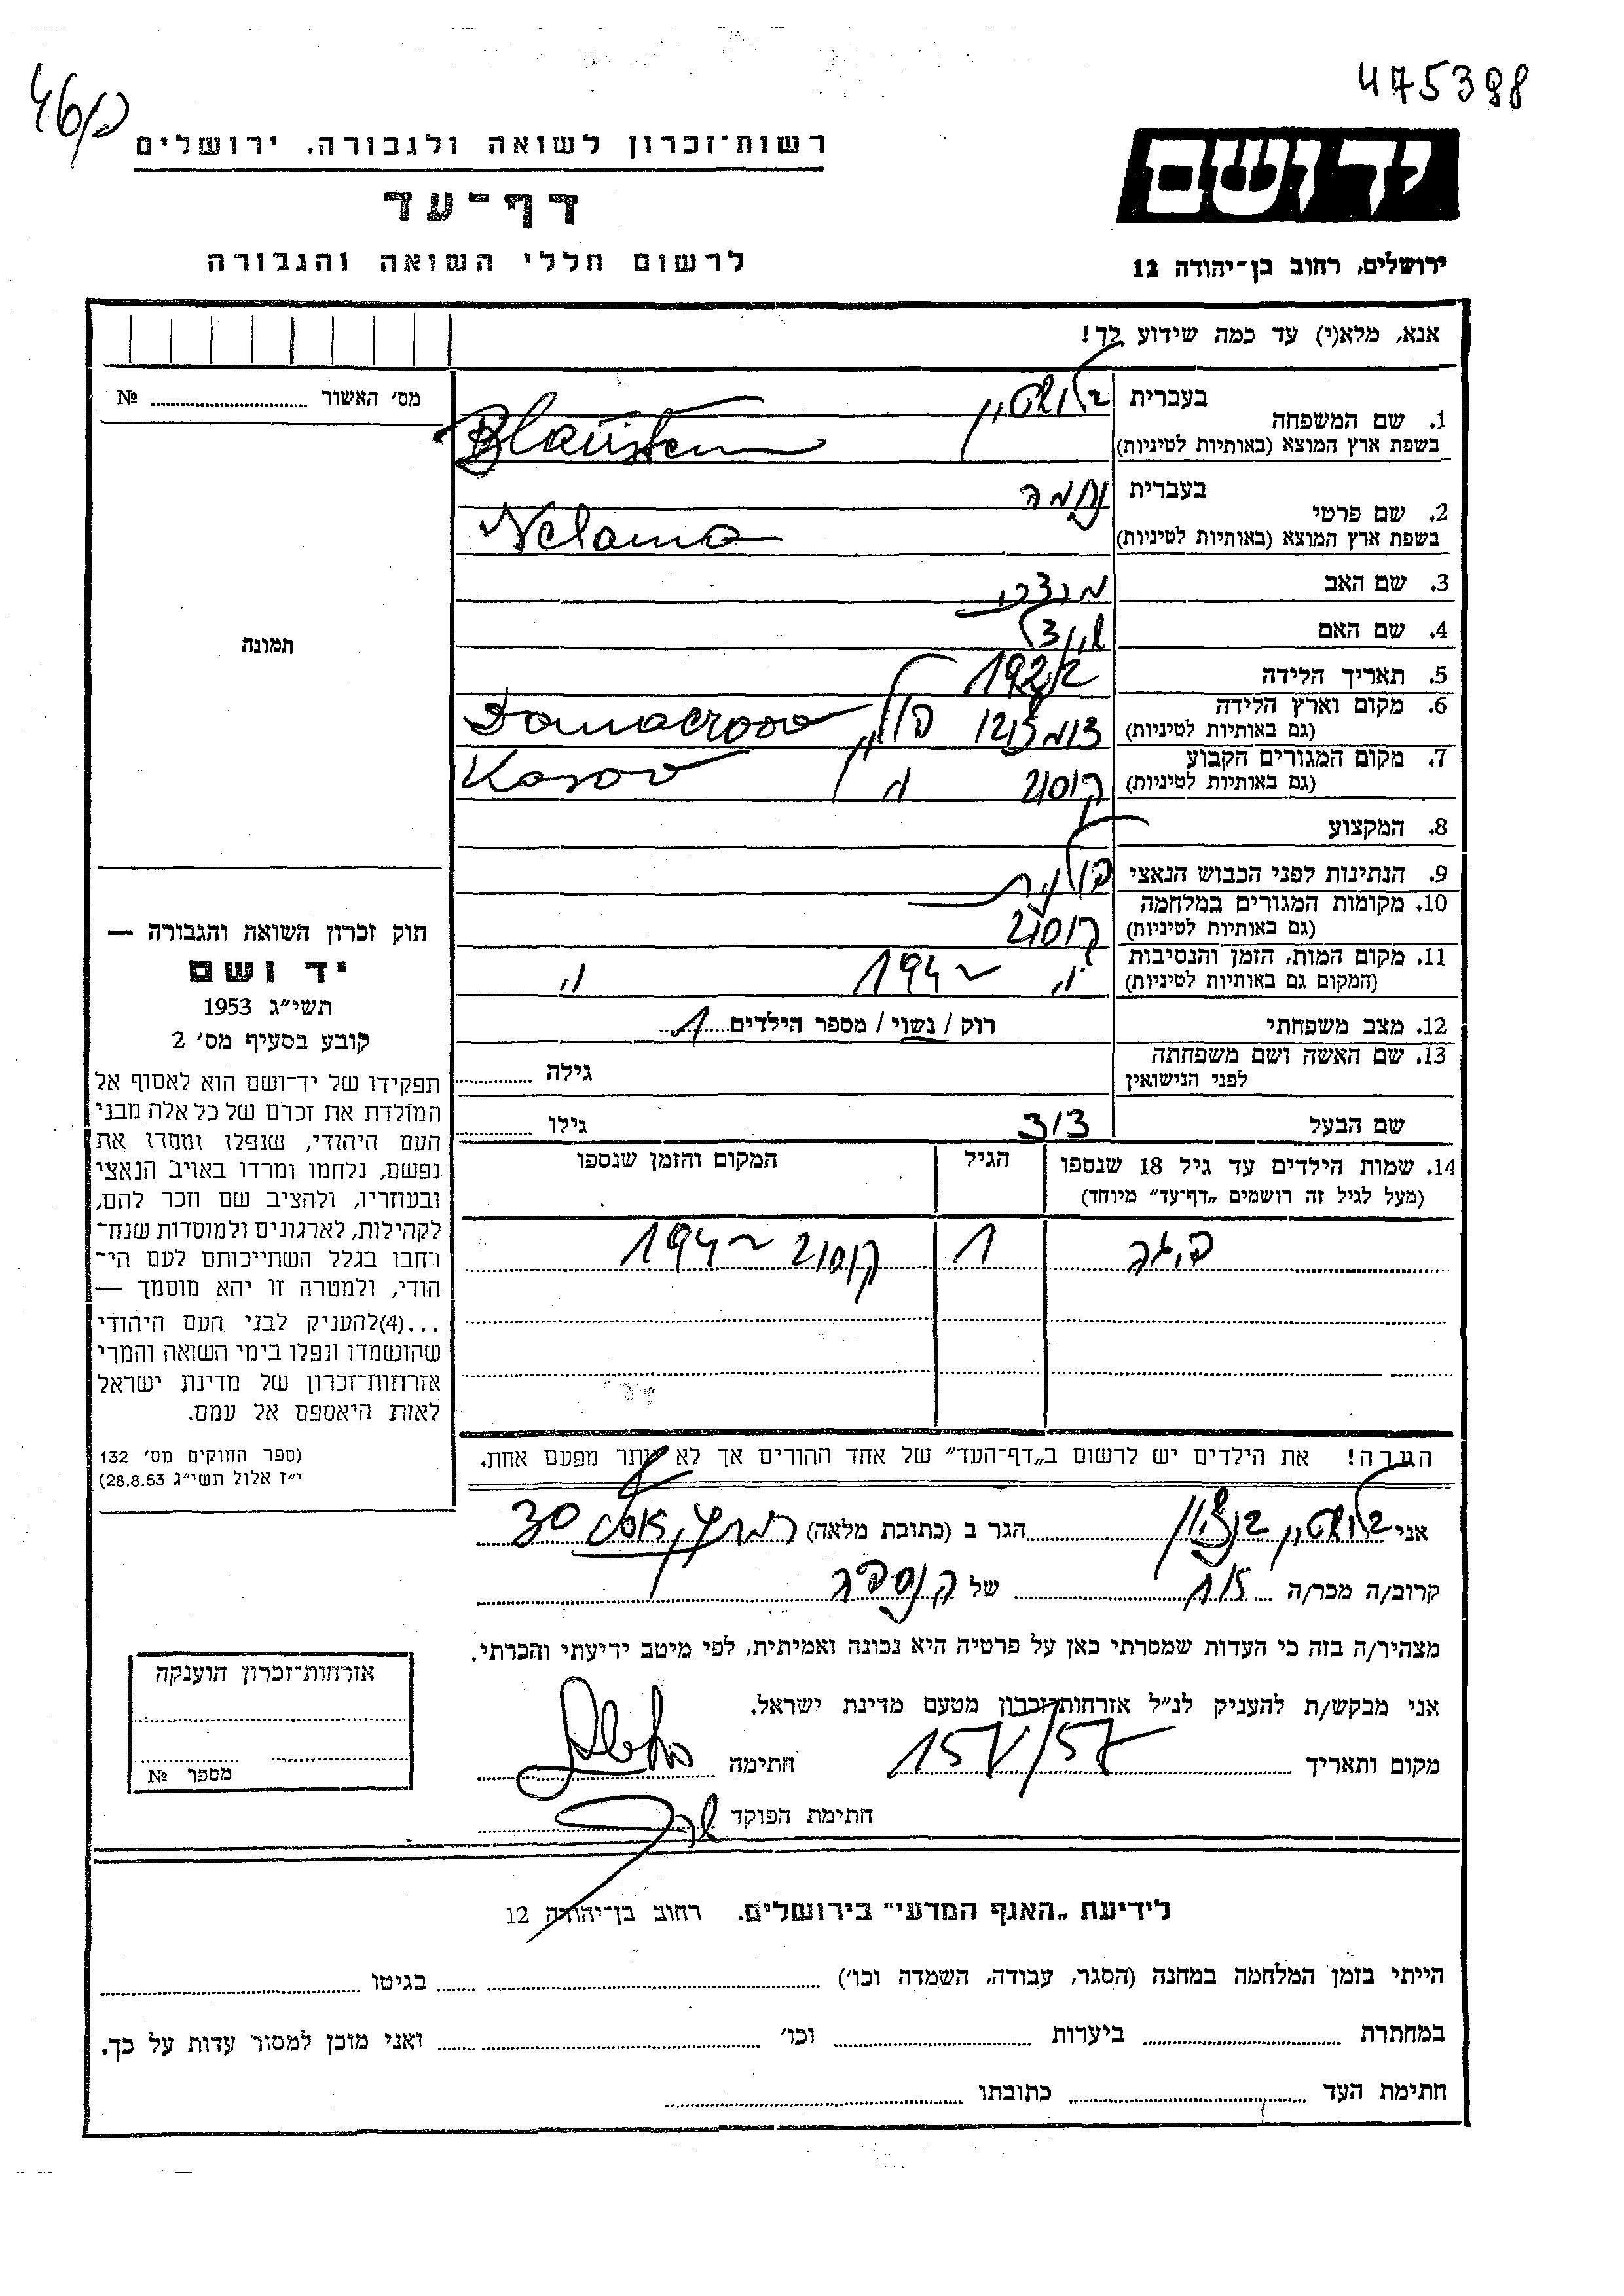 475398
46/פ
יד ושם
ירושלים, רחוב בן־יהודה 12
רשות־זכרון לשואה ולגבורה, ירושלים
דף־עד
לרשום חללי השואה והגבורה
אנא, מלא(י) עד כמה שידוע לך!
מס׳ האשור № 
1. שם המשפחה בעברית בלושטיין
בשפת ארץ המוצא (באותיות לטיניות) Blaustein
2. שם פרטי בעברית נחמה
בשפת ארץ המוצא (באותיות לטיניות) Nechama
3. שם האב מרדכי
4. שם האם
5. תאריך הלידה 1922
6. מקום וארץ הלידה
(גם באותיות לטיניות) פולין
7. מקום המגורים הקבוע
(גם באותיות לטיניות) קוסוב " Kosov
8. המקצוע
9. הנתינות לפני הכבוש הנאצי פולנית
10. מקומות המגורים במלחמה
(גם באותיות לטיניות) קוסוב
11. מקום המות, הזמן והנסיבות
(המקום גם באותיות לטיניות) " 194~ "
12. מצב משפחתי רוק / נשוי / מספר הילדים 1
13. שם האשה ושם משפחתה
לפני הנישואין גילה
שם הבעל דוד גילו
14. שמות הילדים עד גיל 18 שנספו הגיל המקום והזמן שנספו
(מעל לגיל זה רושמים „דף־עד” מיוחד)
1 קוסוב 194~
הערה! את הילדים יש לרשום ב„דף־העד” של אחד ההורים אך לא יותר מפעם אחת.
תמונה
חוק זכרון השואה והגבורה —
יד ושם
תשי״ג 1953
קובע בסעיף מס׳ 2
תפקידו של יד־ושם הוא לאסוף אל
המולדת את זכרם של כל אלה מבני
העם היהודי, שנפלו ומסרו את
נפשם, נלחמו ומרדו באויב הנאצי
ובעוזריו, ולהציב שם וזכר להם,
לקהילות, לארגונים ולמוסדות שנח־
רבו בגלל השתייכותם לעם הי־
הודי, ולמטרה זו יהא מוסמך —
...(4)להעניק לבני העם היהודי
שהושמדו ונפלו בימי השואה והמרי
אזרחות־זכרון של מדינת ישראל
לאות היאספם אל עמם.
(ספר החוקים מס׳ 132
י״ז אלול תשי״ג 28.8.53)
אני בלושטיין בנציון הגר ב (כתובת מלאה) 30
קרוב/ה מכר/ה דוד של הנספה
מצהיר/ה בזה כי העדות שמסרתי כאן על פרטיה היא נכונה ואמיתית, לפי מיטב ידיעתי והכרתי.
אני מבקש/ת להעניק לנ״ל אזרחות־זכרון מטעם מדינת ישראל.
מקום ותאריך 15V/57 חתימה
חתימת הפוקד
אזרחות־זכרון הוענקה
מספר №
לידיעת „האגף המדעי” בירושלים. רחוב בן־יהודה 12
הייתי בזמן המלחמה במחנה (הסגר, עבודה, השמדה וכו׳) בגיטו
במחתרת ביערות וכו׳ ואני מוכן למסור עדות על כך.
חתימת העד כתובתו